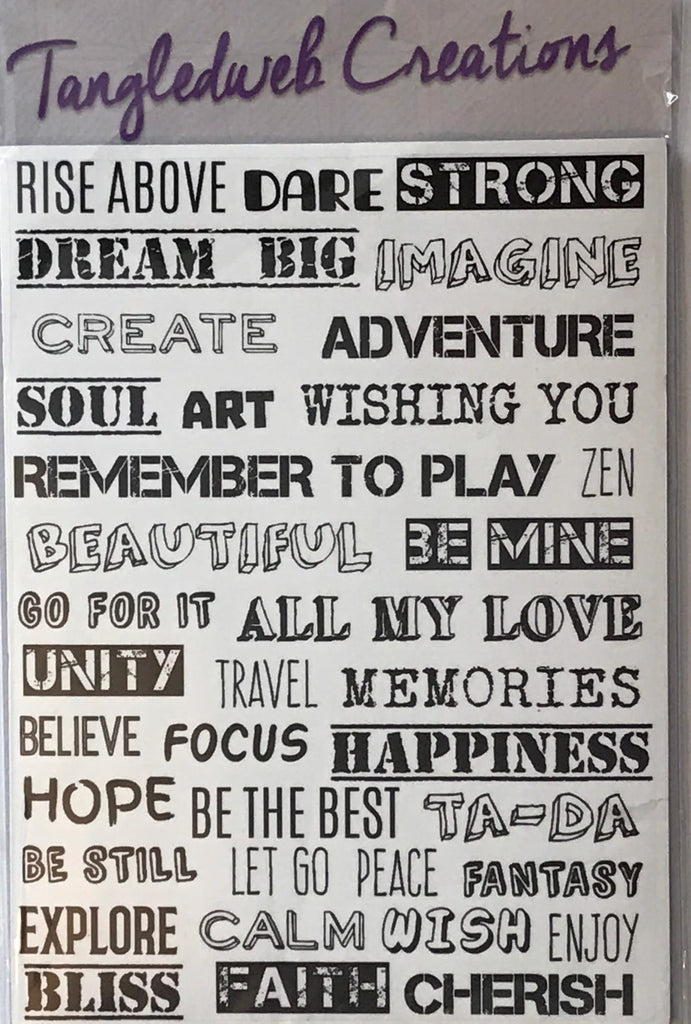 Tangledweb Creations
RISE ABOVE DARE STRONG
DREAM BIG IMAGINE
CREATE ADVENTURE
SOUL ART WISHING YOU
REMEMBER TO PLAY ZEN
BEAUTIFUL BE MINE
GO FOR IT ALL MY LOVE
UNITY TRAVEL MEMORIES
BELIEVE FOCUS HAPPINESS
HOPE BE THE BEST TA-DA
BE STILL LET GO PEACE FANTASY
EXPLORE CALM WISH ENJOY
BLISS FAITH CHERISH